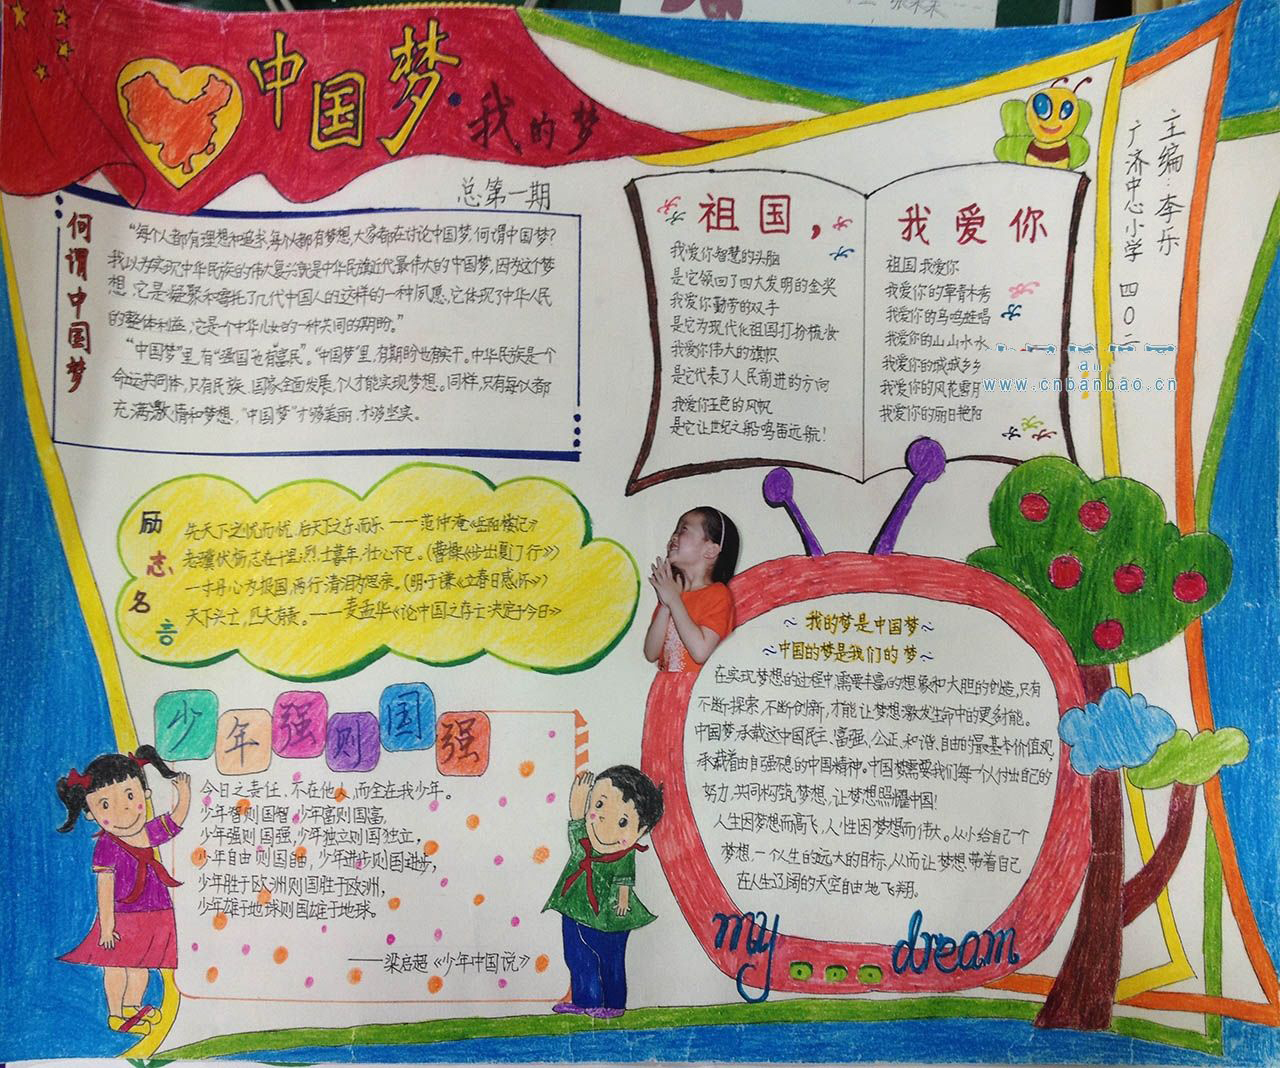 中国梦·我的梦
总第一期
主编:李乐
广济中心小学 四〇二
何谓中国梦
“每个人都有理想和追求,每个人都有梦想,大家都在讨论中国梦,何谓中国梦?
我以为实现中华民族的伟大复兴就是中华民族近代最伟大的中国梦,因为这个梦
想,它是凝聚和寄托了几代中国人的这样的一种夙愿,它体现了中华人民
的整体利益,它是个中华儿女的一种共同的期盼。”
“中国梦”里,有“强国”也有“富民”。“中国梦”里,有期盼也有实干。中华民族是一个
命运共同体,只有民族、国家全面发展,个人才能实现梦想。同样,只有每个人都
充满激情和梦想,“中国梦”才够美丽,才够坚实。
祖国,
我爱你智慧的头脑
是它领回了四大发明的金奖
我爱你勤劳的双手
是它为现代化祖国打扮梳妆
我爱你伟大的旗帜
是它代表了人民前进的方向
我爱你五色的风帆
是它让世纪之船鸣笛远航!
我爱你
祖国,我爱你
我爱你的草青木秀
我爱你的鸟鸣蛙唱
我爱你的山山水水
我爱你的城城乡乡
我爱你的风花雪月
我爱你的丽日艳阳
www.cnbanbao.cn
励志名言
先天下之忧而忧,后天下之乐而乐 ——范仲淹《岳阳楼记》
老骥伏枥,志在千里;烈士暮年,壮心不已。(曹操《步出夏门行》)
一寸丹心为报国,两行清泪为思亲。(明于谦《立春日感怀》)
天下兴亡,匹夫有责。——麦孟华《论中国之存亡决定于今日》
少年强则国强
今日之责任,不在他人,而全在我少年。
少年智则国智,少年富则国富,
少年强则国强,少年独立则国独立,
少年自由则国自由,少年进步则国进步,
少年胜于欧洲则国胜于欧洲,
少年雄于地球则国雄于地球。
——梁启超《少年中国说》
~我的梦是中国梦~
~中国的梦是我们的梦~
在实现梦想的过程中,需要丰富的想象和大胆的创造,只有
不断探索,不断创新,才能让梦想激发生命中的更多可能。
中国梦,承载这中国民主、富强、公正、和谐、自由的最基本价值观,
承载着由自强不息的中国精神。中国梦需要我们每一个人付出自己的
努力,共同构筑梦想,让梦想照耀中国!
人生因梦想而高飞,人性因梦想而伟大。从小给自己一个
梦想,一个人生的远大的目标,从而让梦想带着自己
在人生辽阔的天空自由地飞翔。
my dream